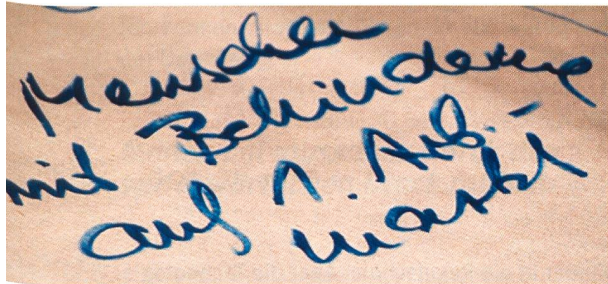 Menschen
mit Behinderung
auf 1. Arb.-
markt